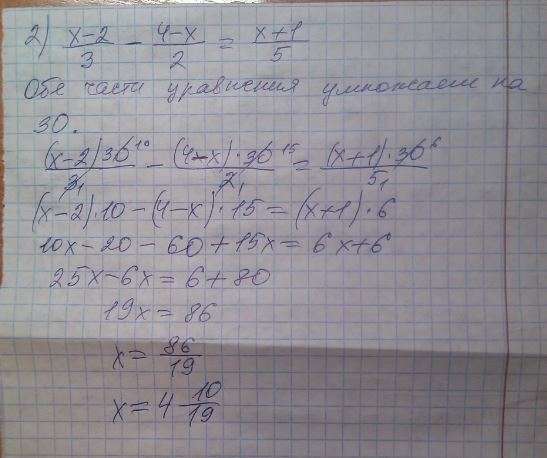 2) (x-2)/3 - (4-x)/2 = (x+1)/5
Обе части уравнения умножаем на
30.
(x-2)30¹⁰/3₁ - (4-x)·30¹⁵/2₁ = (x+1)·30⁶/5₁
(x-2)·10-(4-x)·15=(x+1)·6
10x-20-60+15x=6x+6
25x-6x=6+80
19x=86
x=86/19
x=4 10/19